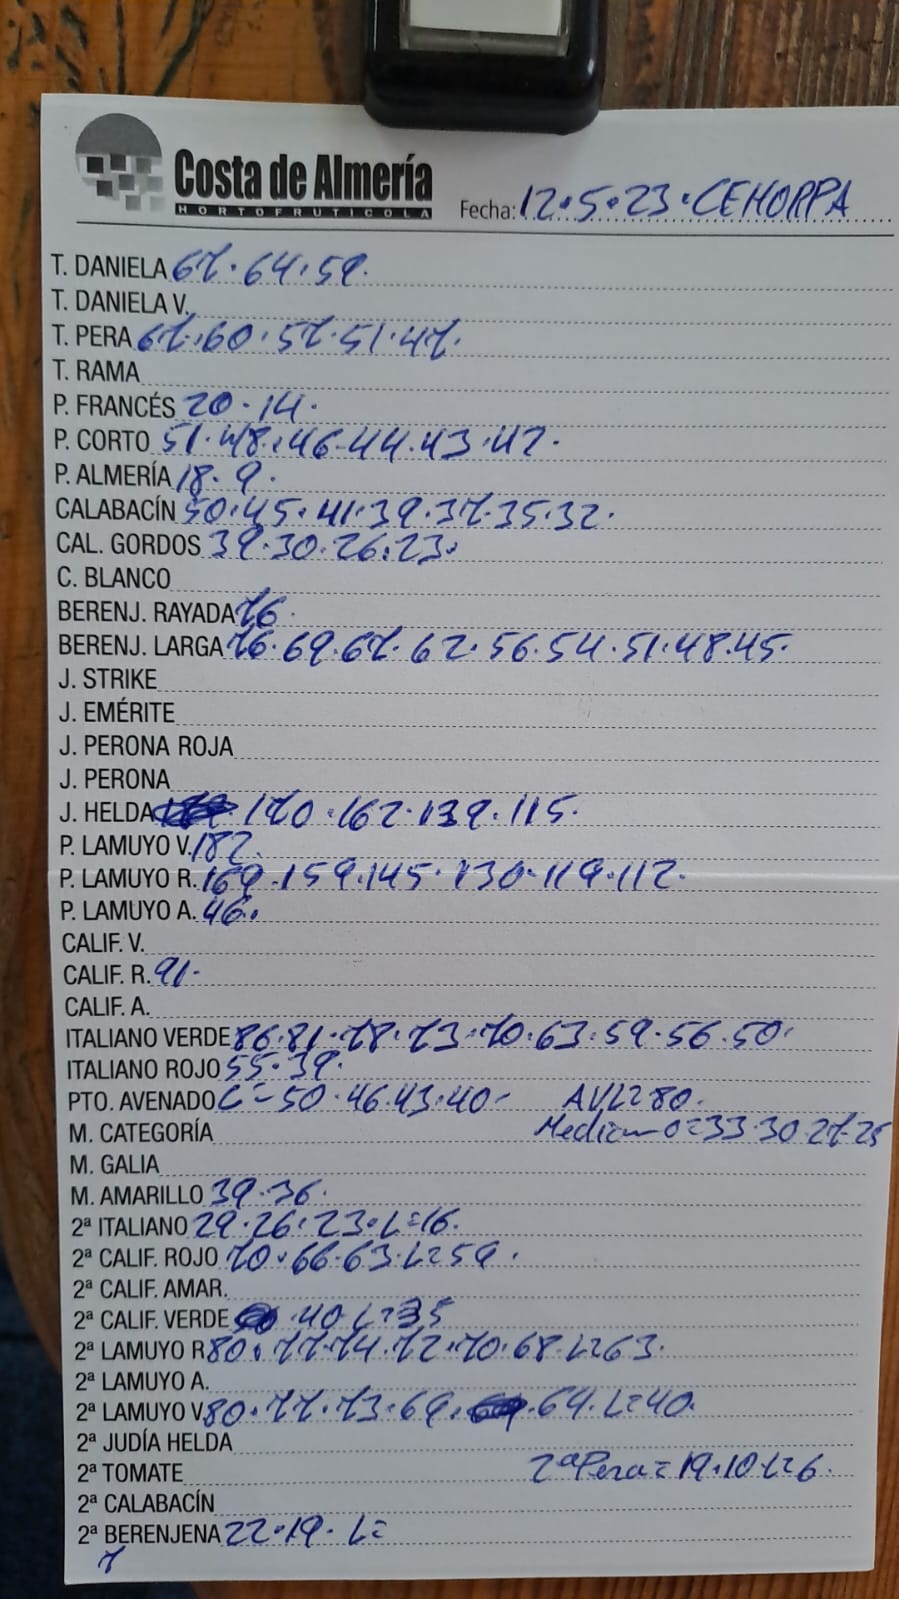 Costa de Almería
HORTOFRUTICOLA
Fecha: 12.5.23.CEHORPA
T. DANIELA 67.64.59.
T. DANIELA V.
T. PERA 67.60.57.51.47.
T. RAMA
P. FRANCÉS 20.14.
P. CORTO 51.48.46.44.43.42.
P. ALMERÍA 18.9.
CALABACÍN 50.45.41.39.37.35.32.
CAL. GORDOS 39.30.26.23.
C. BLANCO
BERENJ. RAYADA 76.
BERENJ. LARGA 76.69.67.62.56.54.51.48.45.
J. STRIKE
J. EMÉRITE
J. PERONA ROJA
J. PERONA
J. HELDA 170.162.139.115.
P. LAMUYO V. 182.
P. LAMUYO R. 169.159.145.130.119.112.
P. LAMUYO A. 46.
CALIF. V.
CALIF. R. 91.
CALIF. A.
ITALIANO VERDE 86.81.78.73.70.63.59.56.50.
ITALIANO ROJO 55.39.
PTO. AVENADO C=50.46.43.40- AVL=80.
M. CATEGORÍA Mediano=33.30.27.25
M. GALIA
M. AMARILLO 39.36.
2ª ITALIANO 29.26.23.L=16.
2ª CALIF. ROJO 70.66.63.L=59.
2ª CALIF. AMAR.
2ª CALIF. VERDE .40 L=35
2ª LAMUYO R 80.77.74.72.70.68.L=63.
2ª LAMUYO A.
2ª LAMUYO V. 80.77.73.69. .64.L=40.
2ª JUDÍA HELDA
2ª TOMATE 2ªPera=19.10.L=6.
2ª CALABACÍN
2ª BERENJENA 22.19. L=
7